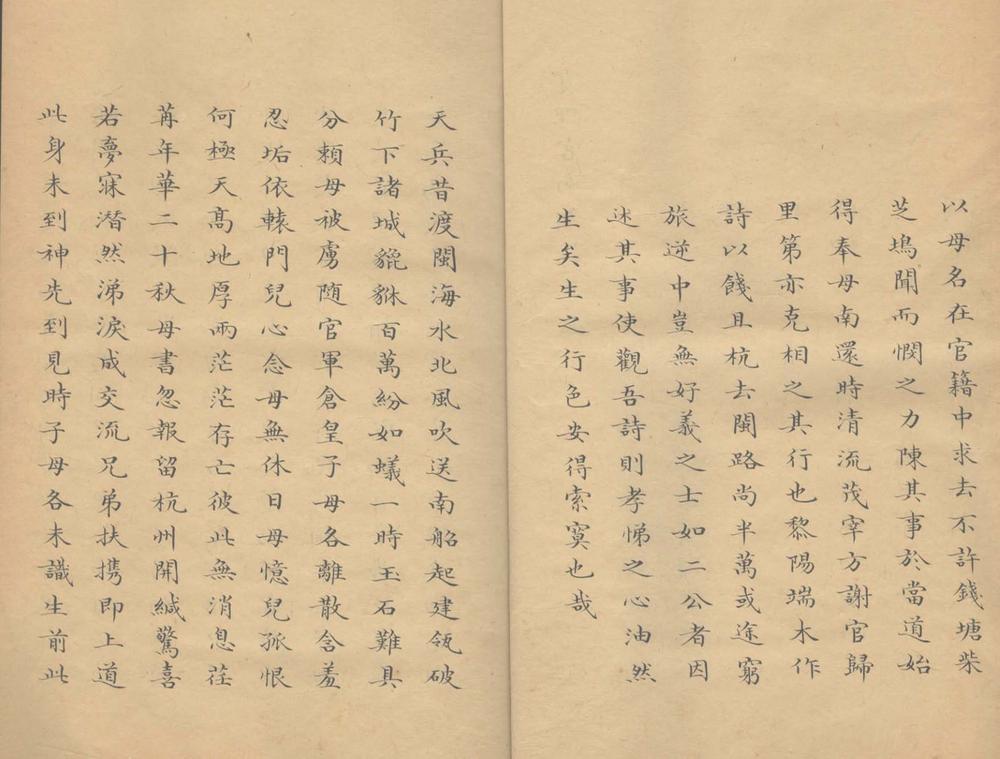 以母名在官籍中求去不許錢塘柴
芝塢聞而憫之力陳其事於當道始
得奉母南還時清流茂宰方謝官歸
里第亦克相之其行也黎陽端木作
詩以餞且杭去閩路尚半萬或途窮
旅逆中豈無好義之士如二公者因
述其事使觀吾詩則孝悌之心油然
生矣生之行色安得索寞也哉
天兵昔渡閩海水北風吹送南船起建瓴破
竹下諸城貔貅百萬紛如蟻一時玉石難具
分賴母被虜随官軍倉皇子母各離散含羞
忍垢依轅門兒心念母無休日母憶兒孤恨
何極天髙地厚兩茫茫存亡彼此無消息荏
苒年華二十秋母書忽報留杭州開緘驚喜
若夢寐潜然涕淚咸交流兄弟扶携即上道
此身未到神先到見時子母各未識生前此